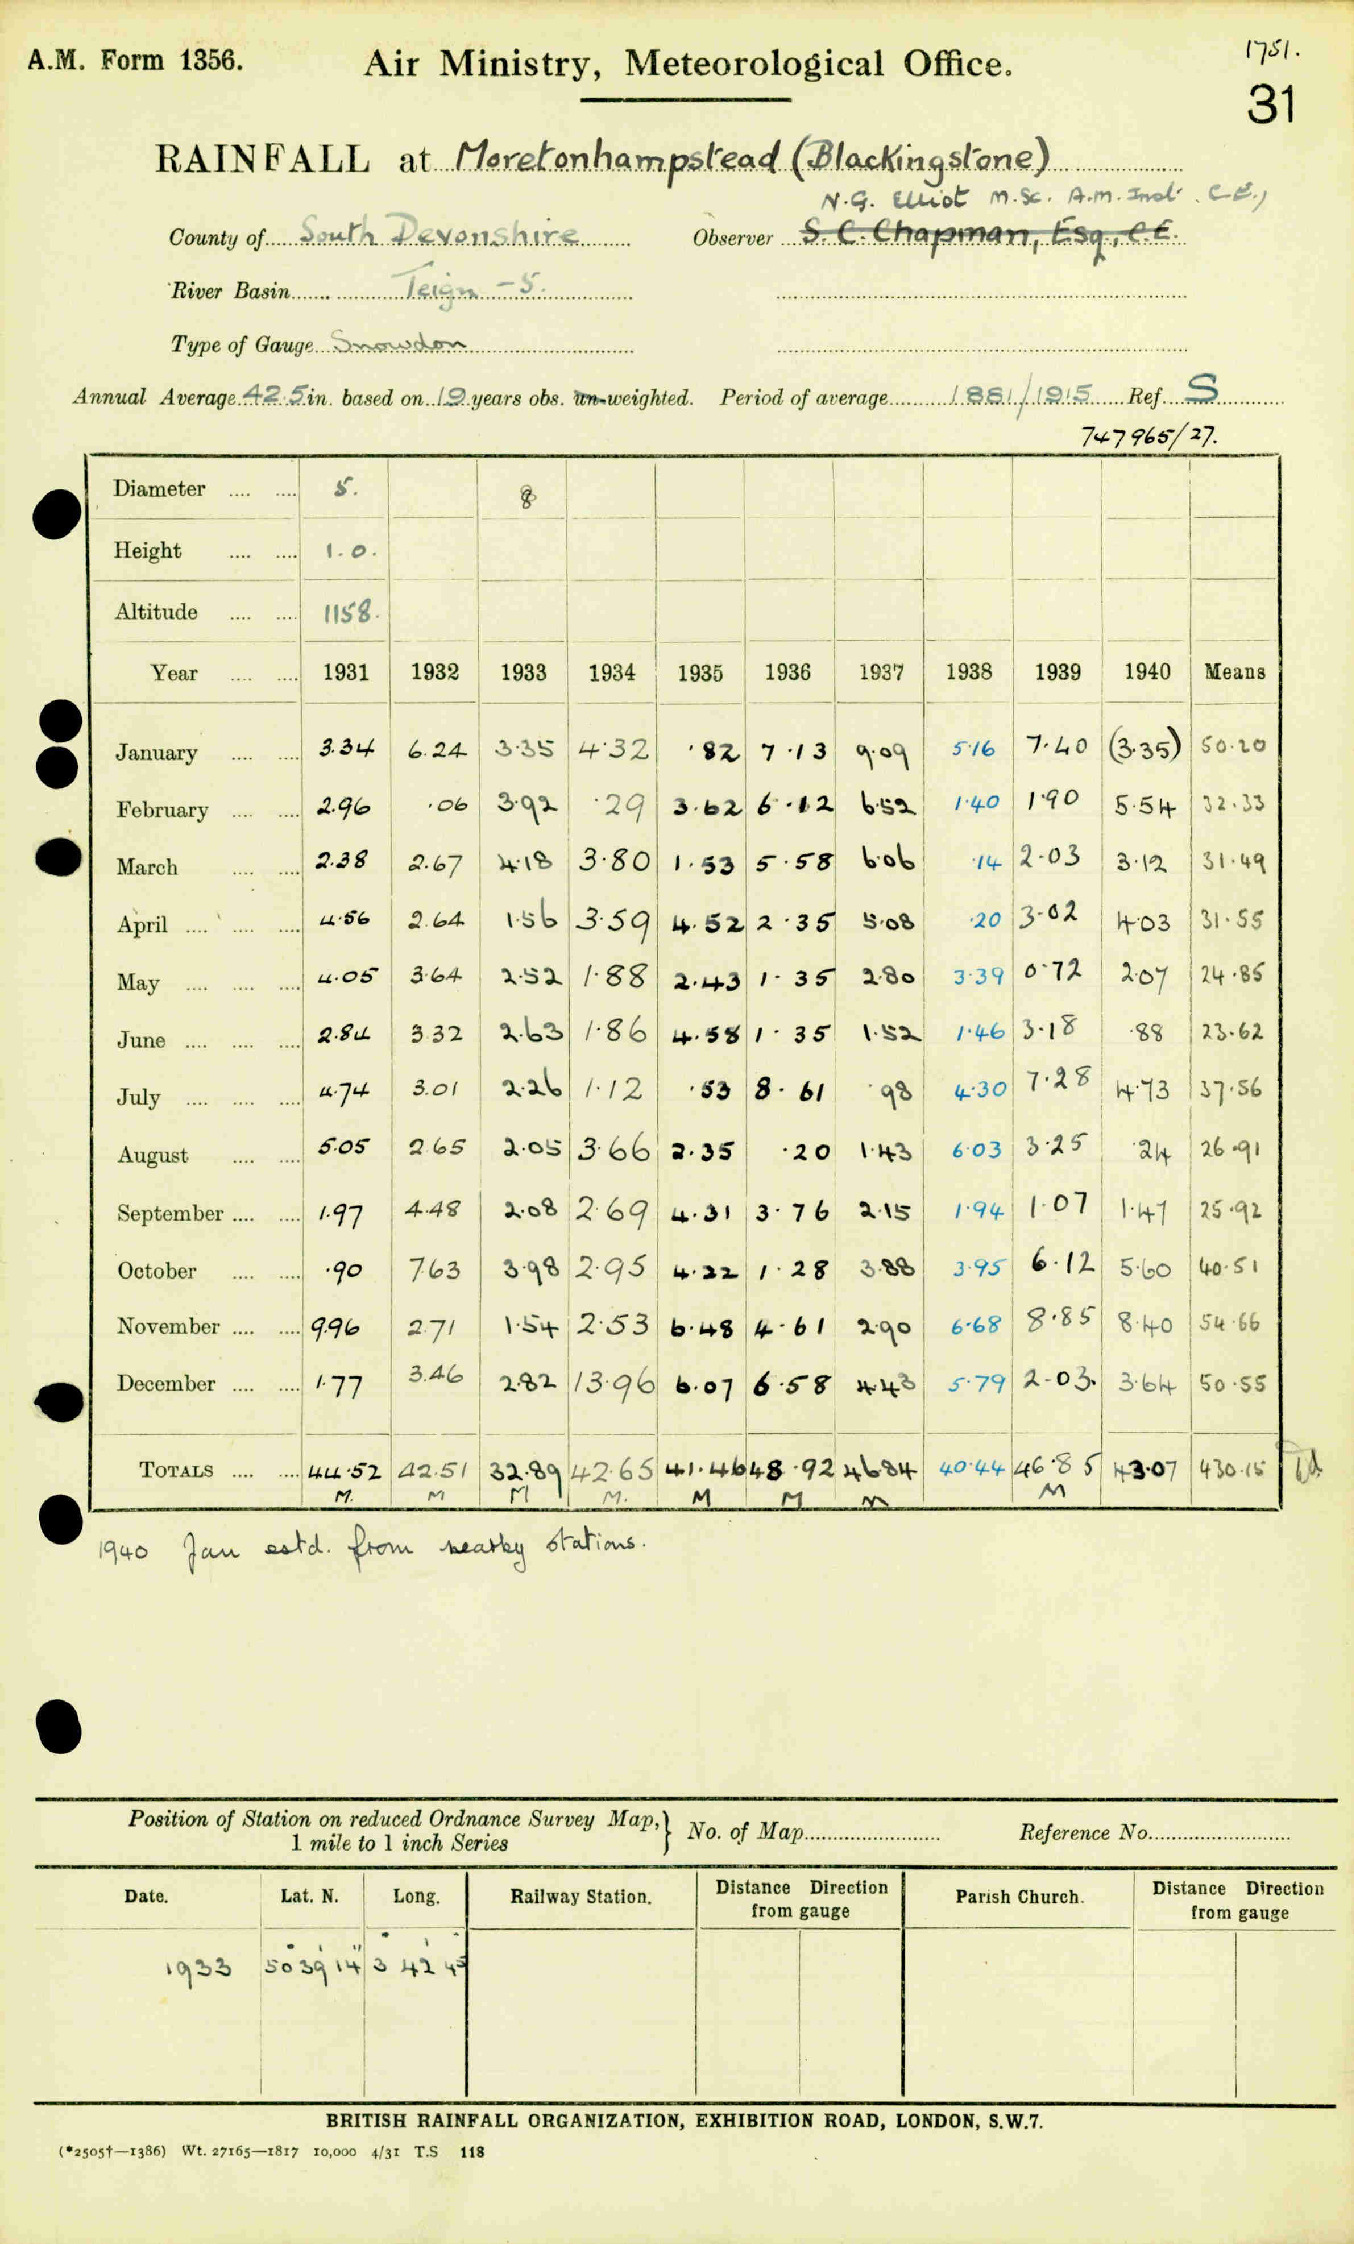 1751.
A.M. Form 1356. Air Ministry, Meteorological Office.
31
RAINFALL at Moretonhampstead (Blackingstone)
N.G. Elliot M.Sc. A.M. Inst. C.E.,
County of South Devonshire Observer S. C. Chapman, Esq., C.E.
River Basin Teign - 5.
Type of Gauge Snowdon
Annual Average 42.5 in. based on 19 years obs. un-weighted. Period of average 1881/1915 Ref. S
747965/27.
Diameter .... .... 5. 8
Height .... .... 1.0.
Altitude .... .... 1158.
Year .... .... 1931 1932 1933 1934 1935 1936 1937 1938 1939 1940 Means
January .... .... 3.34 6.24 3.35 4.32 .82 7.13 9.09 5.16 7.40 (3.35) 50.20
February .... .... 2.96 .06 3.92 .29 3.62 6.12 6.52 1.40 1.90 5.54 32.33
March .... .... 2.38 2.67 4.18 3.80 1.53 5.58 6.06 .14 2.03 3.12 31.49
April .... .... .... 4.56 2.64 1.56 3.59 4.52 2.35 5.08 .20 3.02 4.03 31.55
May .... .... .... 4.05 3.64 2.52 1.88 2.43 1.35 2.80 3.39 0.72 2.07 24.85
June .... .... .... 2.84 3.32 2.63 1.86 4.58 1.35 1.52 1.46 3.18 .88 23.62
July .... .... .... 4.74 3.01 2.26 1.12 .53 8.61 .98 4.30 7.28 4.73 37.56
August .... .... 5.05 2.65 2.05 3.66 2.35 .20 1.43 6.03 3.25 .24 26.91
September .... .... 1.97 4.48 2.08 2.69 4.31 3.76 2.15 1.94 1.07 1.47 25.92
October .... .... .90 7.63 3.98 2.95 4.22 1.28 3.88 3.95 6.12 5.60 40.51
November .... .... 9.96 2.71 1.54 2.53 6.48 4.61 2.90 6.68 8.85 8.40 54.66
December .... .... 1.77 3.46 2.82 13.96 6.07 6.58 4.43 5.79 2.03. 3.64 50.55
TOTALS .... .... 44.52 42.51 32.89 42.65 41.46 48.92 46.84 40.44 46.85 43.07 430.15
M. M M M. M M M M
1940 Jan estd. from nearby stations.
Position of Station on reduced Ordnance Survey Map,} No. of Map Reference No.
1 mile to 1 inch Series
Date. Lat. N. Long. Railway Station. Distance Direction from gauge Parish Church. Distance Direction from gauge
1933 50° 39' 14" 3° 42' 45"
BRITISH RAINFALL ORGANIZATION, EXHIBITION ROAD, LONDON, S.W.7.
(*2505†—1386) Wt. 27165—1817 10,000 4/31 T.S 118